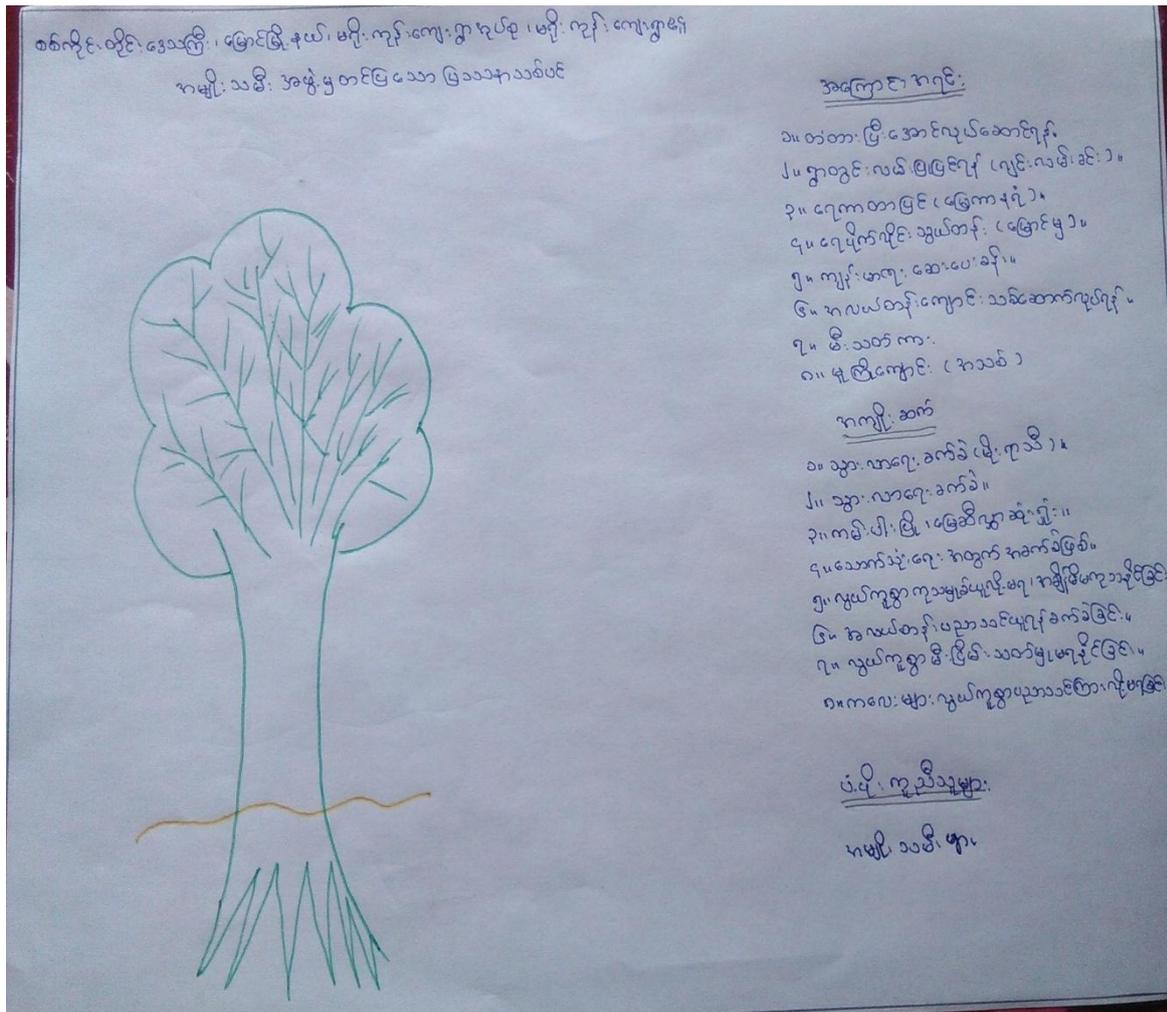 စစ်ကိုင်းတိုင်းဒေသကြီး၊ မြောင်မြို့နယ်၊ မဂိုးကုန်းကျေးရွာအုပ်စု၊ မဂိုးကုန်းကျေးရွာ၏
အမျိုးသမီးအဖွဲ့မှတင်ပြသော ပြဿနာသစ်ပင်
အကြောင်းအရင်း
၁။ တံတားပြီးအောင်လုပ်ဆောင်ရန်။
၂။ ရွာတွင်းလမ်းပြုပြင်ရန် (လျင်းလမ်းခင်း)။
၃။ ရေကာတာပြင် (မြေကာနရံ)။
၄။ ရေပိုက်လိုင်းသွယ်တန်း (မြောင်မှ)။
၅။ ကျန်းမာရေး ဆေးပေးခန်း။
၆။ အလယ်တန်းကျောင်းသစ်ဆောက်လုပ်ရန်။
၇။ မီးသတ်ကား
၈။ မူကြိုကျောင်း (အသစ်)
အကျိုးဆက်
၁။ သွားလာရေးခက်ခဲ (မိုးရာသီ)။
၂။ သွားလာရေးခက်ခဲ။
၃။ ကမ်းပါးပြို၊ မြေဆီလွှာဆုံးရှုံး။
၄။ သောက်သုံးရေးအတွက် အခက်ခဲဖြစ်။
၅။ လွယ်ကူစွာကုသမှုခံယူလို့မရ၊ အချိန်မီမကုသနိုင်ခြင်း
၆။ အလယ်တန်းပညာသင်ယူရန်ခက်ခဲခြင်း။
၇။ လွယ်ကူစွာမီးငြိမ်းသတ်မှုမရနိုင်ခြင်း။
၈။ ကလေးများလွယ်ကူစွာပညာသင်ကြားလို့မရခြင်း
ပံ့ပိုးကူညီသူများ
အမျိုးသမီးများ